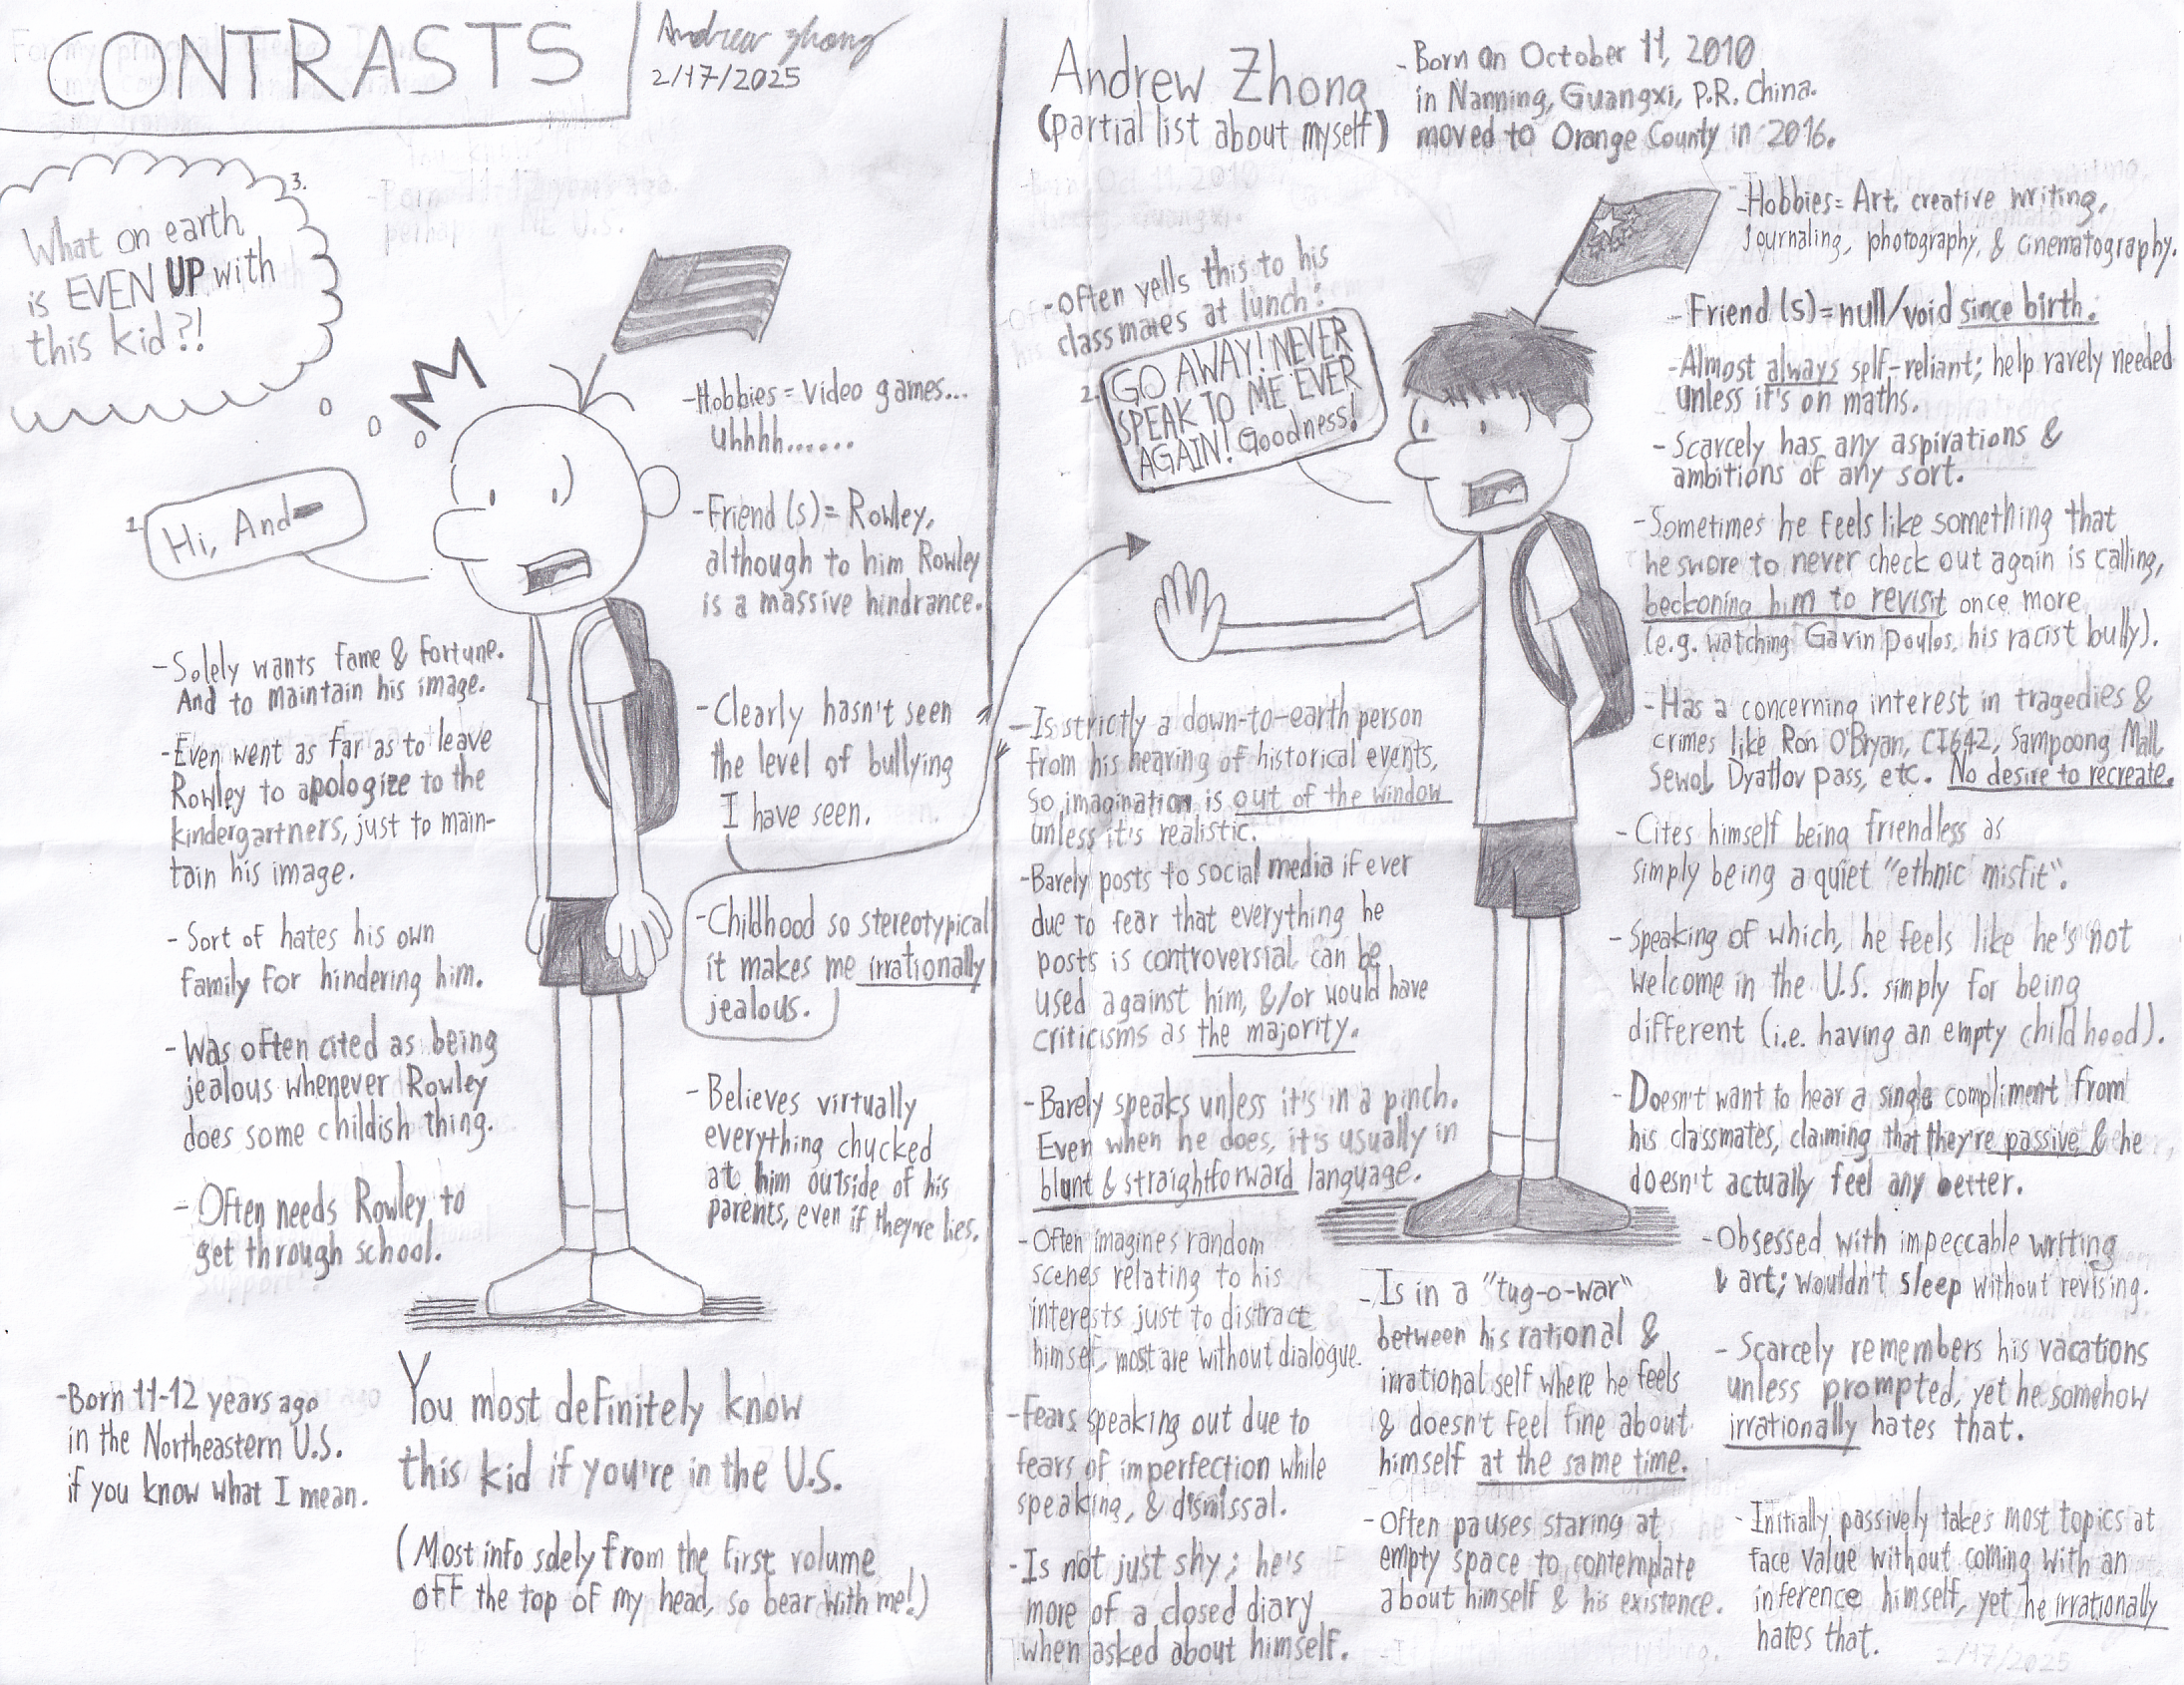 CONTRASTS
Andrew Zhong
2/17/2025
3.
What on earth
is EVEN UP with
this kid?!
1.
Hi, And-
-Hobbies = Video games...
Uhhhh......
-Friend (s) = Rowley,
although to him Rowley
is a massive hindrance.
-Solely wants fame & fortune.
And to maintain his image.
-Even went as far as to leave
Rowley to apologize to the
kindergartners, just to main-
tain his image.
- Sort of hates his own
family for hindering him.
- Was often cited as being
jealous whenever Rowley
does some childish thing.
- Often needs Rowley to
get through school.
-Clearly hasn't seen
the level of bullying
I have seen.
-Childhood so stereotypical
it makes me irrationally
jealous.
- Believes virtually
everything chucked
at him outside of his
parents, even if they're lies.
-Born 11-12 years ago
in the Northeastern U.S.
if you know what I mean.
You most definitely know
this kid if you're in the U.S.
(Most info solely from the first volume
off the top of my head, so bear with me!)
Andrew Zhong
(partial list about myself)
-Born on October 11, 2010
in Nanning, Guangxi, P.R. China.
moved to Orange County in 2016.
-often yells this to his
classmates at lunch:
2.
GO AWAY! NEVER
SPEAK TO ME EVER
AGAIN! Goodness!
-Hobbies= Art, creative writing,
Journaling, photography, & cinematography.
- Friend (s)= null/void since birth.
-Almost always self-reliant; help rarely needed
unless it's on maths.
- Scarcely has any aspirations &
ambitions of any sort.
-Sometimes he feels like something that
he swore to never check out again is calling,
beckoning him to revisit once more
(e.g. watching Gavin Poulos, his racist bully).
-Has a concerning interest in tragedies &
crimes like Ron O'Bryan, CI642, Sampoong Mall,
Sewol, Dyatlov pass, etc. No desire to recreate.
- Cites himself being friendless as
simply being a quiet "ethnic misfit".
- Speaking of which, he feels like he's not
welcome in the U.S. simply for being
different (i.e. having an empty childhood).
- Doesn't want to hear a single compliment from
his classmates, claiming that they're passive & he
doesn't actually feel any better.
-Obsessed with impeccable writing
& art; wouldn't sleep without revising.
- Scarcely remembers his vacations
unless prompted, yet he somehow
irrationally hates that.
- Initially passively takes most topics at
face value without coming with an
inference himself, yet he irrationally
hates that.
-Is strictly a down-to-earth person
from his hearing of historical events,
so imagination is out of the window
unless it's realistic.
-Barely posts to social media if ever
due to fear that everything he
posts is controversial, can be
used against him, &/or would have
criticisms as the majority.
-Barely speaks unless it's in a pinch.
Even when he does, it's usually in
blunt & straightforward language.
-Often imagines random
scenes relating to his
interests just to distract
himself, most are without dialogue.
-Fears speaking out due to
fears of imperfection while
speaking, & dismissal.
-Is not just shy; he's
more of a closed diary
when asked about himself.
-Is in a "tug-o-war"
between his rational &
irrational self where he feels
& doesn't feel fine about
himself at the same time.
-Often pauses staring at
empty space to contemplate
about himself & his existence.
2/17/2025